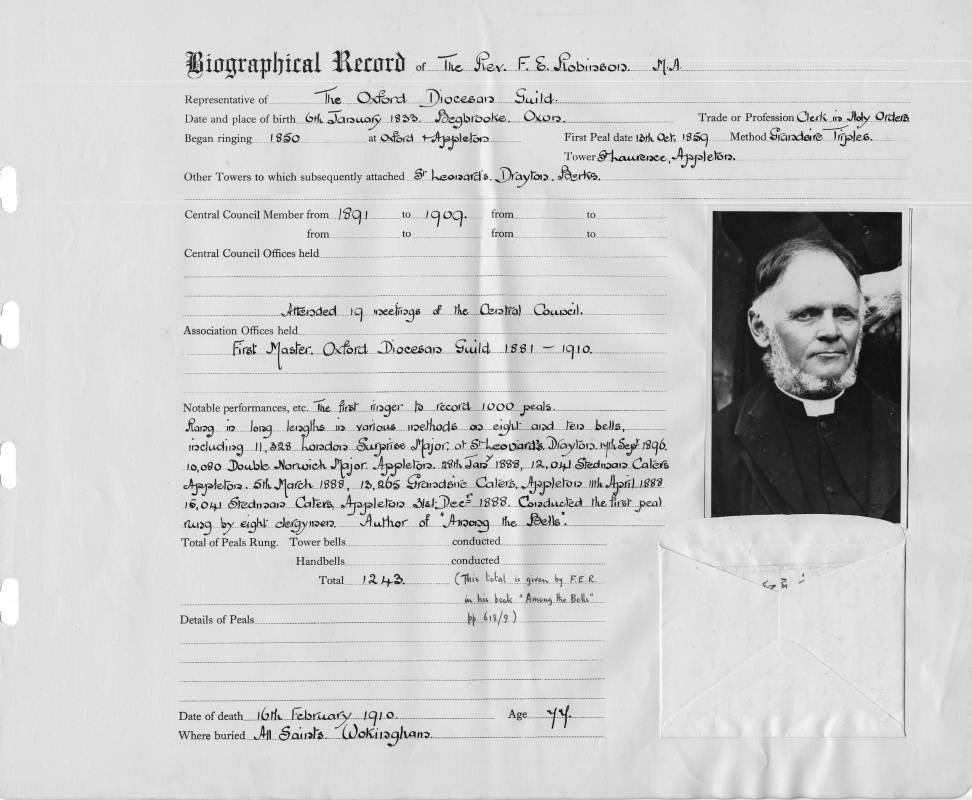 Biographical Record of The Rev. F. E. Robinson. M.A.
Representative of The Oxford Diocesan Guild.
Date and place of birth 6th January 1833. Begbrooke. Oxon. Trade or Profession Clerk in Holy Orders
Began ringing 1850 at Oxford + Appleton First Peal date 13th Oct, 1859 Method Grandsire Triples.
Tower St Laurence, Appleton.
Other Towers to which subsequently attached St Leonard's. Drayton. Berks.
Central Council Member from 1891 to 1909. from to
from to from to
Central Council Offices held
Attended 19 meetings of the Central Council.
Association Offices held
First Master. Oxford Diocesan Guild 1881 - 1910.
Notable performances, etc. The first ringer to record 1000 peals.
Rang in long lengths in various methods on eight and ten bells,
including 11,328 London Surprise Major. at St Leonard's. Drayton. Sept. 1896.
10,080 Double Norwich Major. Appleton. 28th Jany 1888, 12,041 Stedman Caters
Appleton. 5th March 1888, 13,265 Grandsire Caters, Appleton 11th April 1888
15,041 Stedman Caters, Appleton 31st Decr 1888. Conducted the first peal
rung by eight clergymen. Author of "Among the Bells".
Total of Peals Rung. Tower bells conducted
Handbells conducted
Total 1243. (This total is given by F.E.R.
in his book "Among the Bells"
pp. 618/9)
Details of Peals
Date of death 16th February 1910. Age 77.
Where buried All Saints. Wokingham.